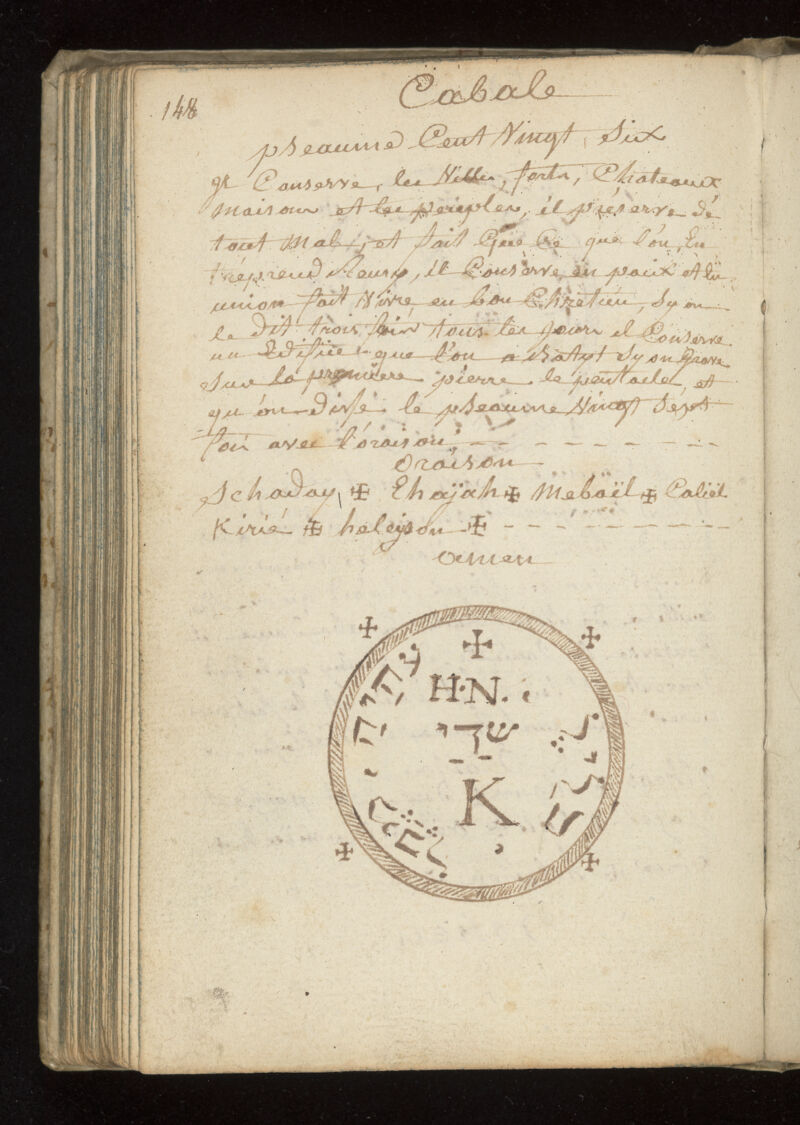 148
Cabale
pseaume Cent Vingt, Six
Conserve, les Villes, forts, Chateaux
maisons et les peuples, il préserve dé
tout mal, et fait que ce que l'on, En
tréprend Reussy, il Conserve en paix et En
union fait Vivre en bon Chretien, Sy on
le Dit trois fois tous les jours il Conserve
un Edifice que l'on a Batyt Sy on Grave
Sur la premiere pierre le pentacle, et
qu'on Disse le pseaume Vingt Sept
fois avec l'oraison
oraison
Schaday, ✠ Ehajah ✠ Mebaïl ✠ Caliel
Kirié ✠ heleyson ✠
amen
✠ ✠ ✠
H·N.
שדי
K
✠ ✠